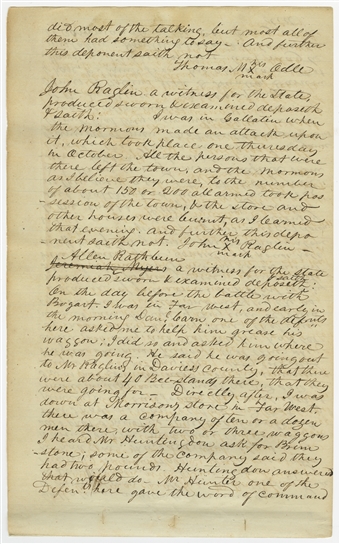 did most of the talking, but most all of
them had something to say. And further
this deponent saith not.
Thomas M his X Odle
mark
John Raglin a witness for the State,
produced sworn & examined deposeth
& saith: I was in Gallatin when
the mormons made an attack upon
it, which took place one thursday
in October. All the persons that were
there left the town, and the mormons
as I believe they were, to the number
of about 150 or 200 all armed took pos-
session of the town, & the store and
other houses were burnt, as I learned
that evening. and further this depo-
nent saith not. John his X Raglin
mark
Allen Rathbun
Jeremiah Myers a witness for the state
produced sworn & examined deposeth & saith:
On the day before the battle with
Bogart I was in Far West, and early in
the morning Danl. Carn one of the defts.
here asked me to help him grease his
waggon; I did so and asked him where
he was going. He said he was going out
to Mr Raglins in Daviess County, that there
were about 40 Bee-stands there, that they
were going for. Directly after, I was
down at Morrisons store in Far West.
there was a company of ten or a dozen
men there, with two or three waggons
I heard Mr Huntingdon ask for Brim
stone; some of the company said they
had two pounds. Huntingdon answered
that would do. Mr Hunter one of the
Defents here gave the word of command